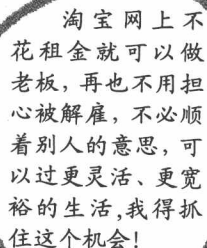 淘宝网上不
花租金就可以做
老板，再也不用担
心被解雇，不必顺
着别人的意思，可
以过更灵活、更宽
裕的生活,我得抓
住这个机会!